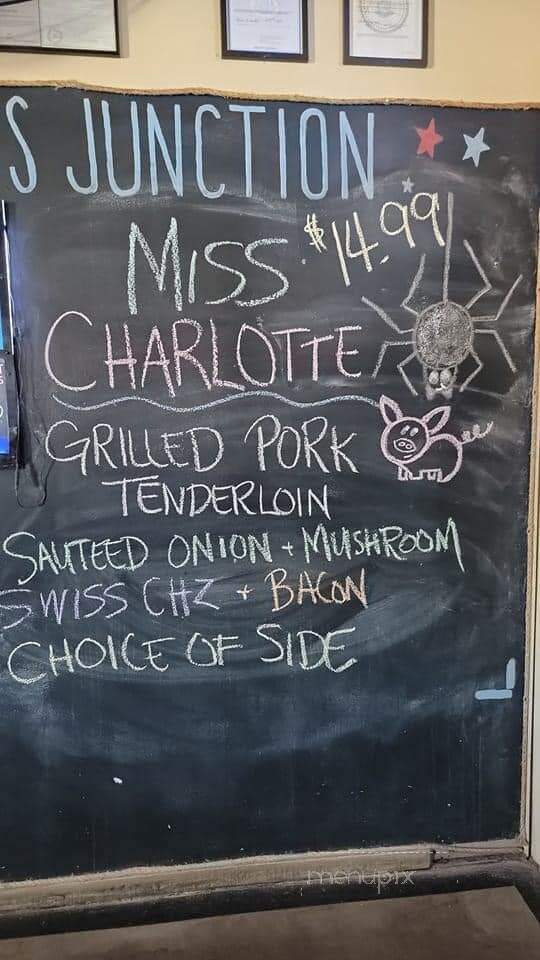 S JUNCTION
$14.99
MISS
CHARLOTTE
GRILLED PORK
TENDERLOIN
SAUTEED ONION + MUSHROOM
SWISS CHZ + BACON
CHOICE OF SIDE
menupix